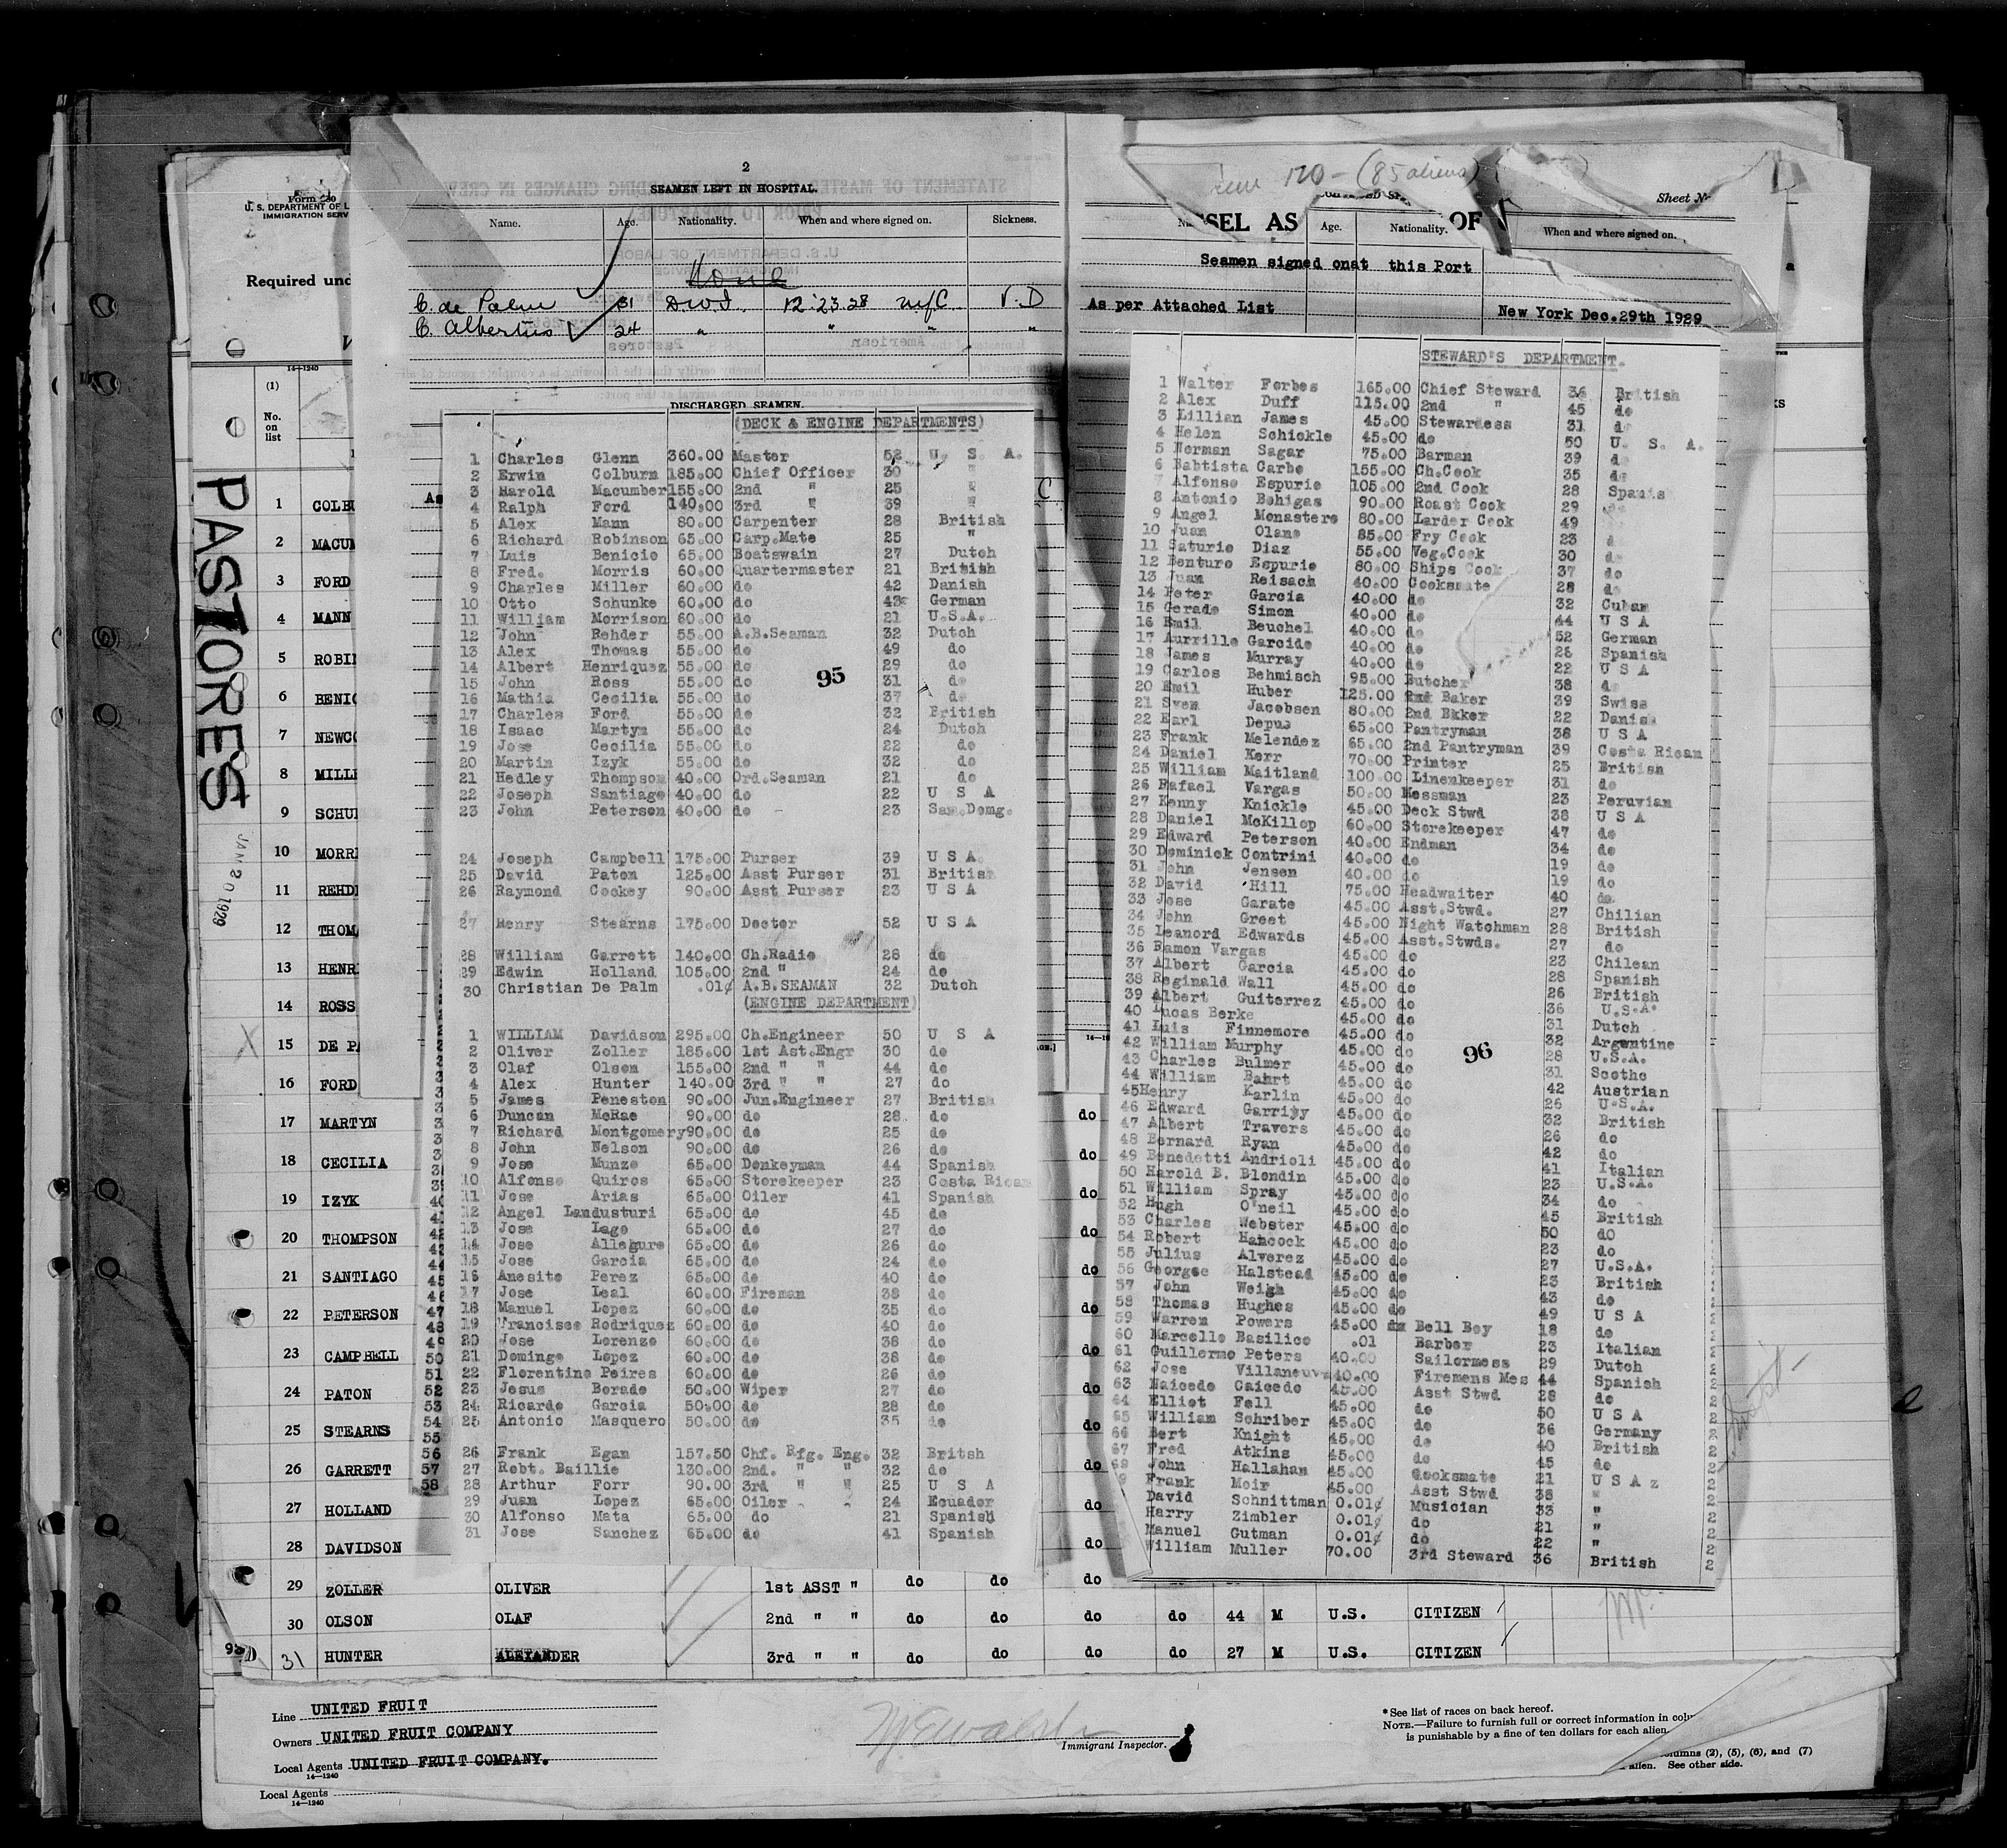 2
SEAMEN LEFT IN HOSPITAL.
Name. Age. Nationality. When and where signed on. Sickness.
None
C. de Palm 31 D.W.I. 12-23-28 NYC V.D
C. Albertus 24 " " " "
DISCHARGED SEAMEN.
(DECK & ENGINE DEPARTMENTS)
1 Charles Glenn 360.00 Master 52 U. S. A.
2 Erwin Colburn 185.00 Chief Officer 30 "
3 Harold Macumber 155.00 2nd " 25 "
4 Ralph Ford 140.00 3rd " 39 "
5 Alex Mann 80.00 Carpenter 28 British
6 Richard Robinson 65.00 Carp.Mate 25 "
7 Luis Benicio 65.00 Boatswain 27 Dutch
8 Fred. Morris 60.00 Quartermaster 21 British
9 Charles Miller 60.00 do 42 Danish
10 Otto Schunke 60.00 do 43 German
11 William Morrison 60.00 do 21 U.S.A.
12 John Rehder 55.00 A.B.Seaman 32 Dutch
13 Alex Thomas 55.00 do 49 do
14 Albert Henriquez 55.00 do 29 do
15 John Ross 55.00 do 31 do
16 Mathia Cecilia 55.00 do 37 do
17 Charles Ford 55.00 do 32 British
18 Isaac Martyn 55.00 do 24 Dutch
19 Jose Cecilia 55.00 do 22 do
20 Martin Izyk 55.00 do 32 do
21 Hedley Thompson 40.00 Ord.Seaman 21 do
22 Joseph Santiago 40.00 do 22 U S A
23 John Peterson 40.00 do 23 San.Domg.
95
24 Joseph Campbell 175.00 Purser 39 U S A.
25 David Paton 125.00 Asst Purser 31 British
26 Raymond Cockey 90.00 Asst Purser 23 U S A
27 Henry Stearns 175.00 Doctor 52 U S A
28 William Garrett 140.00 Ch.Radio 28 do
29 Edwin Holland 105.00 2nd " 24 do
30 Christian De Palm .01¢ A.B.SEAMAN 32 Dutch
(ENGINE DEPARTMENT)
1 WILLIAM Davidson 295.00 Ch.Engineer 50 U S A
2 Oliver Zoller 185.00 1st Ast.Engr 30 do
3 Olaf Olsen 155.00 2nd " " 44 do
4 Alex Hunter 140.00 3rd " " 27 do
5 James Peneston 90.00 Jun.Engineer 27 British
6 Duncan McRae 90.00 do 28 do
7 Richard Montgomery 90.00 do 25 do
8 John Nelson 90.00 do 26 do
9 Jose Munze 65.00 Donkeyman 44 Spanish
10 Alfonso Quiros 65.00 Storekeeper 23 Costa Rican
11 Jose Arias 65.00 Oiler 41 Spanish
12 Angel Landusturi 65.00 do 45 do
13 Jose Lago 65.00 do 27 do
14 Jose Allegure 65.00 do 26 do
15 Jose Garcia 65.00 do 24 do
16 Anesito Perez 65.00 do 40 do
17 Jose Leal 60.00 Fireman 38 do
18 Manuel Lopez 60.00 do 35 do
19 Francisco Rodriquez 60.00 do 40 do
20 Jose Lorenzo 60.00 do 38 do
21 Domingo Lopez 60.00 do 38 do
22 Florentino Peires 60.00 do 26 do
23 Jesus Borado 50.00 Wiper 27 do
24 Ricardo Garcia 50.00 do 28 do
25 Antonio Masquero 50.00 do 35 do
26 Frank Egan 157.50 Chf. Rfg. Eng. 32 Britsh
27 Robt. Baillie 130.00 2nd. " " 32 do
28 Arthur Forr 90.00 3rd " " 25 U S A
29 Juan Lopez 65.00 Oiler 24 Ecuador
30 Alfonso Mata 65.00 do 21 Spanish
31 Jose Sanchez 65.00 do 41 Spanish
120 - (85 aliens)
Sheet
SSEL AS OF
Age. Nationality. When and where signed on.
Seamen signed onat this Port
As per Attached List New York Dec.29th 1929
STEWARD'S DEPARTMENT.
1 Walter Forbes 165.00 Chief Steward 36 British
2 Alex Duff 115.00 2nd " 45 do
3 Lillian James 45.00 Stewardess 31 do
4 Helen Schickle 45.00 do 50 U. S. A.
5 Norman Sagar 75.00 Barman 39 do
6 Babtista Carbo 155.00 Ch.Cook 35 do
7 Alfonso Espurio 105.00 2nd Cook 28 Spanis
8 Antonio Bohigas 90.00 Roast Cook 29
9 Angel Monastero 80.00 Larder Cook 49
10 Juan Olano 85.00 Fry Cook 23 d
11 Saturio Diaz 55.00 Veg.Cook 30 do
12 Benturo Espurio 80.00 Ships Cook 37 do
13 Juan Reisach 40.00 Cooksmate 28 do
14 Peter Garcia 40.00 do 32 Cuban
15 Gerado Simon 40.00 do 44 U S A
16 Emil Beuchel 40.00 do 52 German
17 Aurrillo Garcido 40.00 do 26 Spanish
18 James Murray 40.00 do 22 U S A
19 Carlos Behmisch 95.00 Butcher 38 do
20 Emil Huber 125.00 Baker 39 Swiss
21 Sven Jacobsen 80.00 2nd Bkker 22 Danish
22 Earl Depue 65.00 Pantryman 38 U S A
23 Frank Melendez 65.00 2nd Pantryman 39 Costa Rican
24 Daniel Kerr 70.00 Printer 25 British
25 William Maitland 100.00 Linenkeeper 31 do
26 Rafael Vargas 50.00 Messman 23 Peruvian
27 Kenny Knickle 45.00 Deck Stwd 38 U S A
28 Daniel McKillop 60.00 Storekeeper 47 do
29 Edward Peterson 40.00 Endman 34 do
30 Dominick Contrini 40.00 do 19 do
31 John Jensen 40.00 do 19 do
32 David Hill 75.00 Headwaiter 40 do
33 Jose Garate 45.00 Asst.Stwd. 27 Chilian
34 John Greet 45.00 Night Watchman 28 British
35 Leanord Edwards 45.00 Asst.Stwds. 27 do
36 Ramon Vargas 45.00 do 23 Chilean
37 Albert Garcia 45.00 do 28 Spanish
38 Reginald Wall 45.00 do 26 British
39 Albert Guiterrez 45.00 do 36 U.S.A.
40 Lucas Berke 45.00 do 31 Dutch
41 Luis Finnemore 45.00 do 32 Argentine
42 William Murphy 45.00 do 28 U.S.A.
43 Charles Bulmer 45.00 do 31 Scothc
44 William Bahrt 45.00 do 42 Austrian
45 Henry Karlin 45.00 do 26 U.S.A.
46 Edward Garrity 45.00 do 32 British
47 Albert Travers 45.00 do 26 do
48 Bernard Ryan 45.00 do 42 do
49 Benedetti Andrioli 45.00 do 41 Italian
50 Harold B. Blondin 45.00 do 23 U.S.A.
51 William Spray 45.00 do 34 do
52 Hugh O'neil 45.00 do 45 British
53 Charles Webster 45.00 do 50 dO
54 Robert Hancock 45.00 do 23 do
55 Julius Alverez 45.00 do 27 U.S.A.
56 Georgee Halstead 45.00 do 23 British
57 John Weigh 45.00 do 43 do
58 Thomas Hughes 45.00 do 49 U S A
59 Warren Powers 45.00 Bell Boy 18 do
60 Marcello Basilico .01 Barber 23 Italian
61 Guillermo Peters 40.00 Sailormess 29 Dutch
62 Jose Villaneuva 40.00 Firemens Mes 44 Spanish
63 Naicedo Caicedo 45.00 Asst Stwd 28 do
64 Elliot Fell 45.00 do 50 U S A
65 William Schriber 45.00 do 36 Germany
66 Bert Knight 45.00 do 40 British
67 Fred Atkins 45.00 do 45 do
68 John Hallahan 45.00 Cooksmate 21 U S A z
9 Frank Moir 45.00 Asst Stwd 38 "
David Schnittman 0.01¢ Musician 33 "
Harry Zimbler 0.01¢ do 21 "
Manuel Gutman 0.01¢ do 22 "
William Muller 70.00 3rd Steward 36 British
96
Form 680
U. S. DEPARTMENT OF L
IMMIGRATION SERV
Required und
14—1240
(1)
No. on list
PASTORES
JAN 20 1929
1 COLBU
2 MACUM
3 FORD
4 MANN
5 ROBIN
6 BENIC
7 NEWCO
8 MILLE
9 SCHUN
10 MORRI
11 REHDE
12 THOMA
13 HENRI
14 ROSS
X 15 DE PA
16 FORD
17 MARTYN do
18 CECILIA do
19 IZYK do
20 THOMPSON do
21 SANTIAGO do
22 PETERSON do
23 CAMPBELL do
24 PATON do
25 STEARNS do
26 GARRETT do
27 HOLLAND do
28 DAVIDSON do
29 ZOLLER OLIVER 1st ASST " do do do
30 OLSON OLAF 2nd " " do do do do 44 M U.S. CITIZEN
31 HUNTER ALEXANDER 3rd " " do do do do 27 M U.S. CITIZEN
Line UNITED FRUIT
Owners UNITED FRUIT COMPANY
Local Agents UNITED FRUIT COMPANY.
14—1240
Immigrant Inspector.
* See list of races on back hereof.
NOTE.—Failure to furnish full or correct information in colu
is punishable by a fine of ten dollars for each alien.
olumns (2), (5), (6), and (7)
alien. See other side.
Local Agents
14—1240